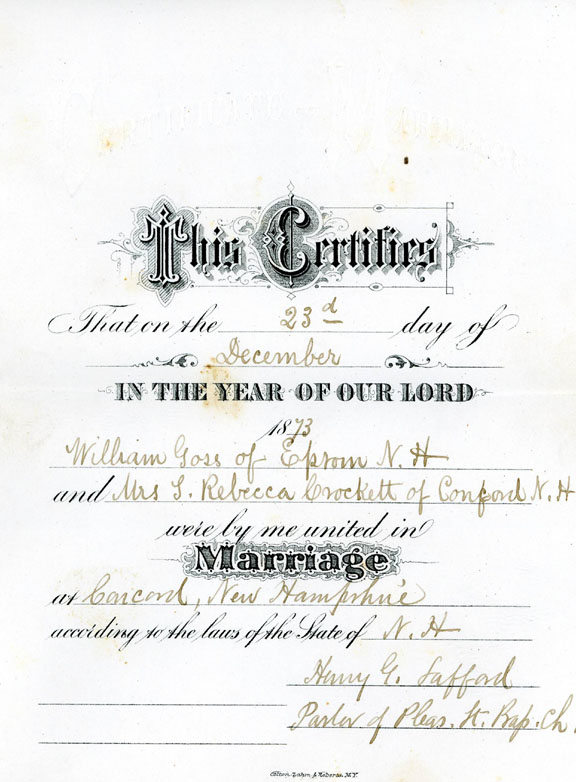 This Certifies
That on the 23d day of
December
IN THE YEAR OF OUR LORD
1873
William Goss of Epsom N. H
and Mrs S. Rebecca Crockett of Concord N. H
were by me united in
Marriage
at Concord, New Hampshire
according to the laws of the State of N. H
Henry G. Safford
Pastor of Pleas. St. Bap. Ch.